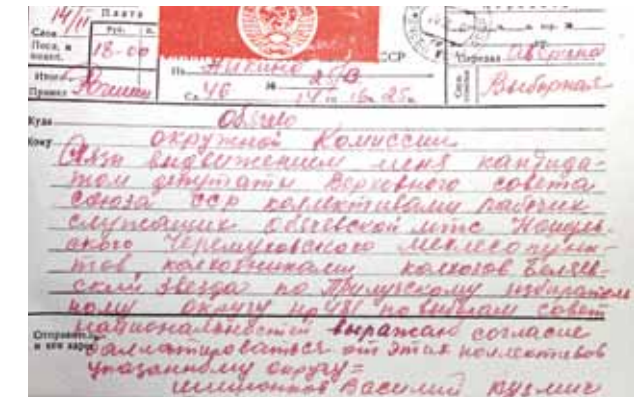 14/II Плата
Слов Руб. к.
18-00
СССР
Передал Аверина
Из Аникино 25/В
Сл. 46 14 го 16ч 25м
Принял
Служ. отметки Выборная
Куда Объячево
Кому окружной Комиссии
Связи выдвижением меня кандида-
том депутаты Верховного совета
Союза ССР коллективами рабочих
служащих объячевской мтс
Черемуховского мехлесопунк-
тов колхозниками колхозов
звезда по Прилузскому избиратель
ному округу но 481 по выборам совет
национальностей выражаю согласие
баллотироваться от этих коллективов
указанному округу=
Василий Кузмич
Отправитель
и его адрес